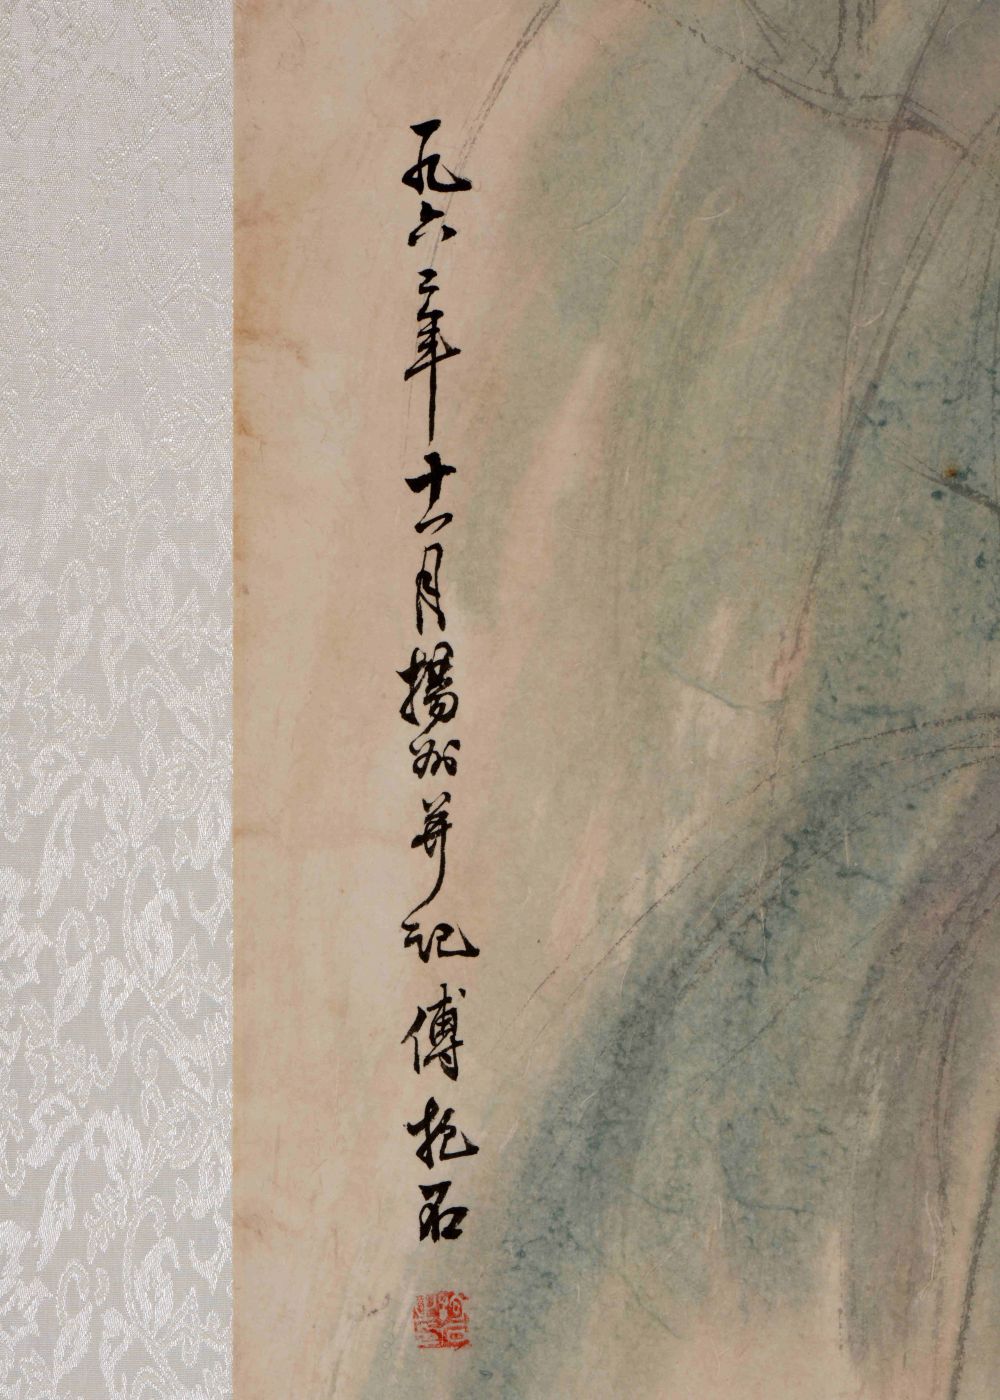 一九六三年十一月揚州并記傅抱石